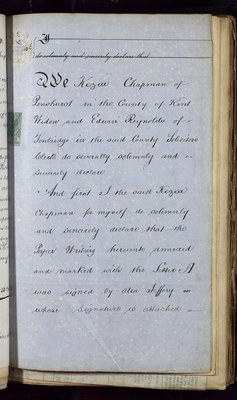 I
do solemnly and sincerely declare that
We Kezia Chapman of
Penshurst in the County of Kent
Widow and Edwin Reynolds of
Tonbridge in the said County Solicitors
Clerk do severally solemnly and
sincerely declare
And first I the said Kezia
Chapman for myself do solemnly
and sincerely declare that the
Paper Writing hereunto annexed
and marked with the Letter A
was signed by
whose Signature is attached